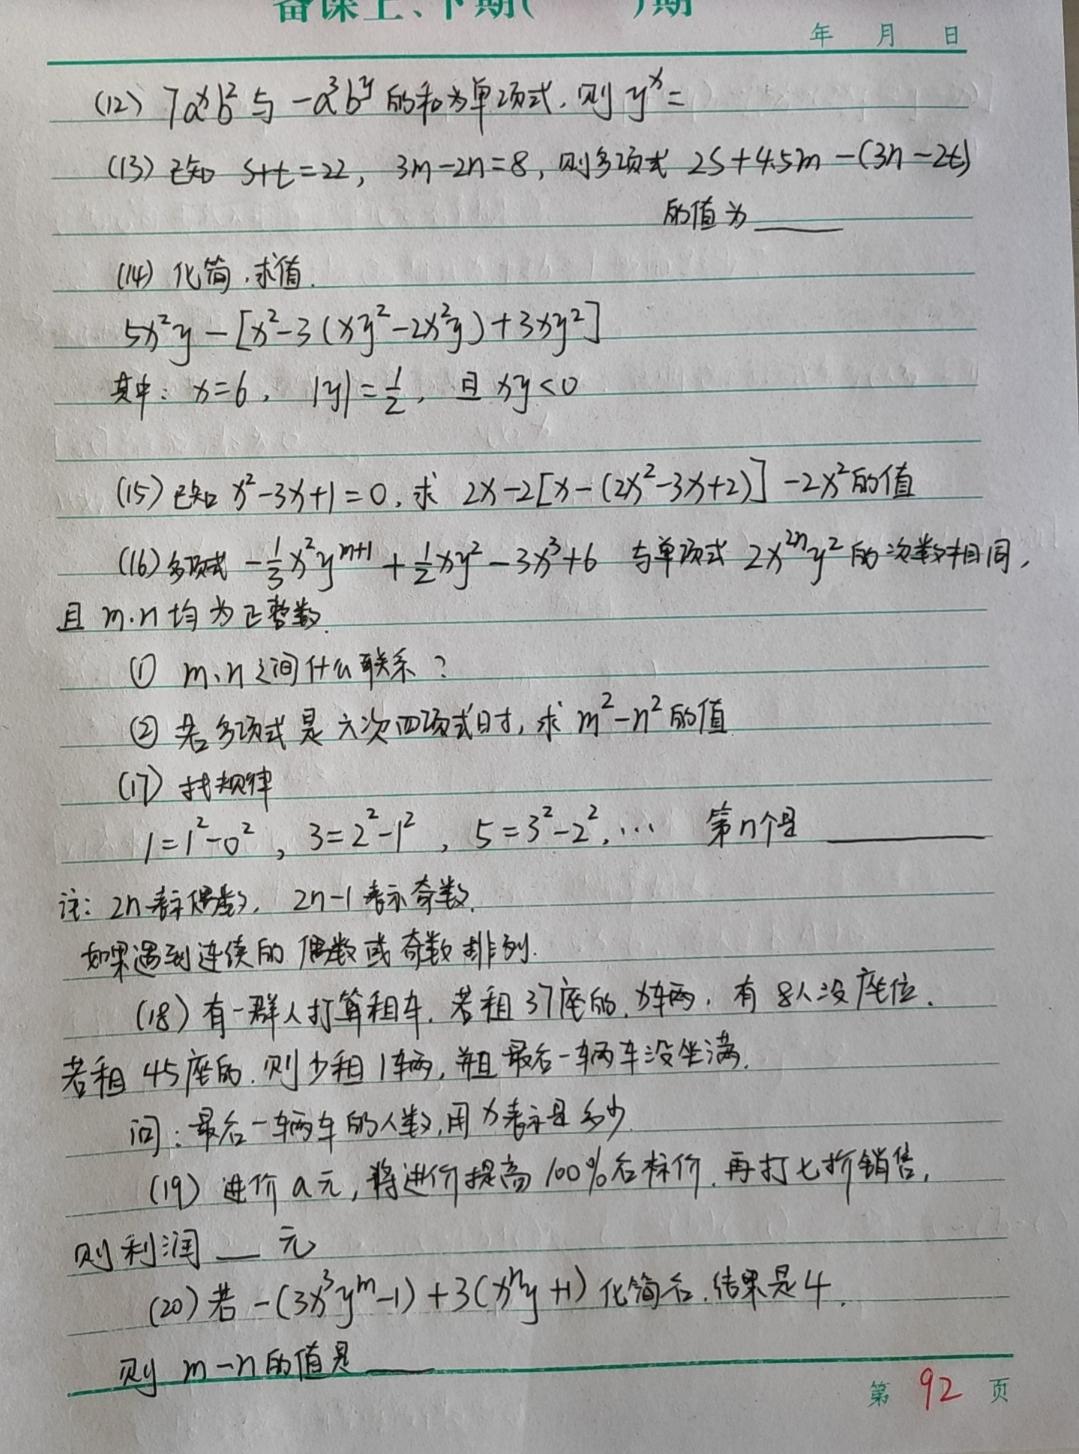 备课上、下期( )期
年 月 日
(12) 7aˣb²与 -a³bʸ 的和为单项式,则 yˣ=
(13) 已知 s+t=22, 3m-2n=8,则多项式 2s+4.5m-(3n-2t)
的值为____
(14) 化简,求值.
5x²y-[x²-3(xy²-2x²y)+3xy²]
其中: x=6, |y|=1/2, 且 xy<0
(15) 已知 x²-3x+1=0,求 2x-2[x-(2x²-3x+2)]-2x²的值
(16) 多项式 -1/3x²yᵐ⁺¹+1/2xy²-3x³+6 与单项式 2x²ⁿy²的次数相同,
且 m.n 均为正整数.
① m、n之间什么联系?
② 若多项式是六次四项式时,求 m²-n²的值
(17) 找规律
1=1²-0², 3=2²-1², 5=3²-2²,… 第n个是______
注: 2n表示偶数, 2n-1表示奇数.
如果遇到连续的偶数或奇数排列.
(18) 有一群人打算租车.若租37座的,x车辆,有8人没座位.
若租45座的.则少租1车辆,并且最后一辆车没坐满.
问:最后一辆车的人数,用x表示是多少.
(19) 进价a元,将进价提高100%后标价.再打七折销售,
则利润__元
(20) 若 -(3x³yᵐ-1)+3(xⁿy+1)化简后.结果是4.
则 m-n的值是____
第 92 页